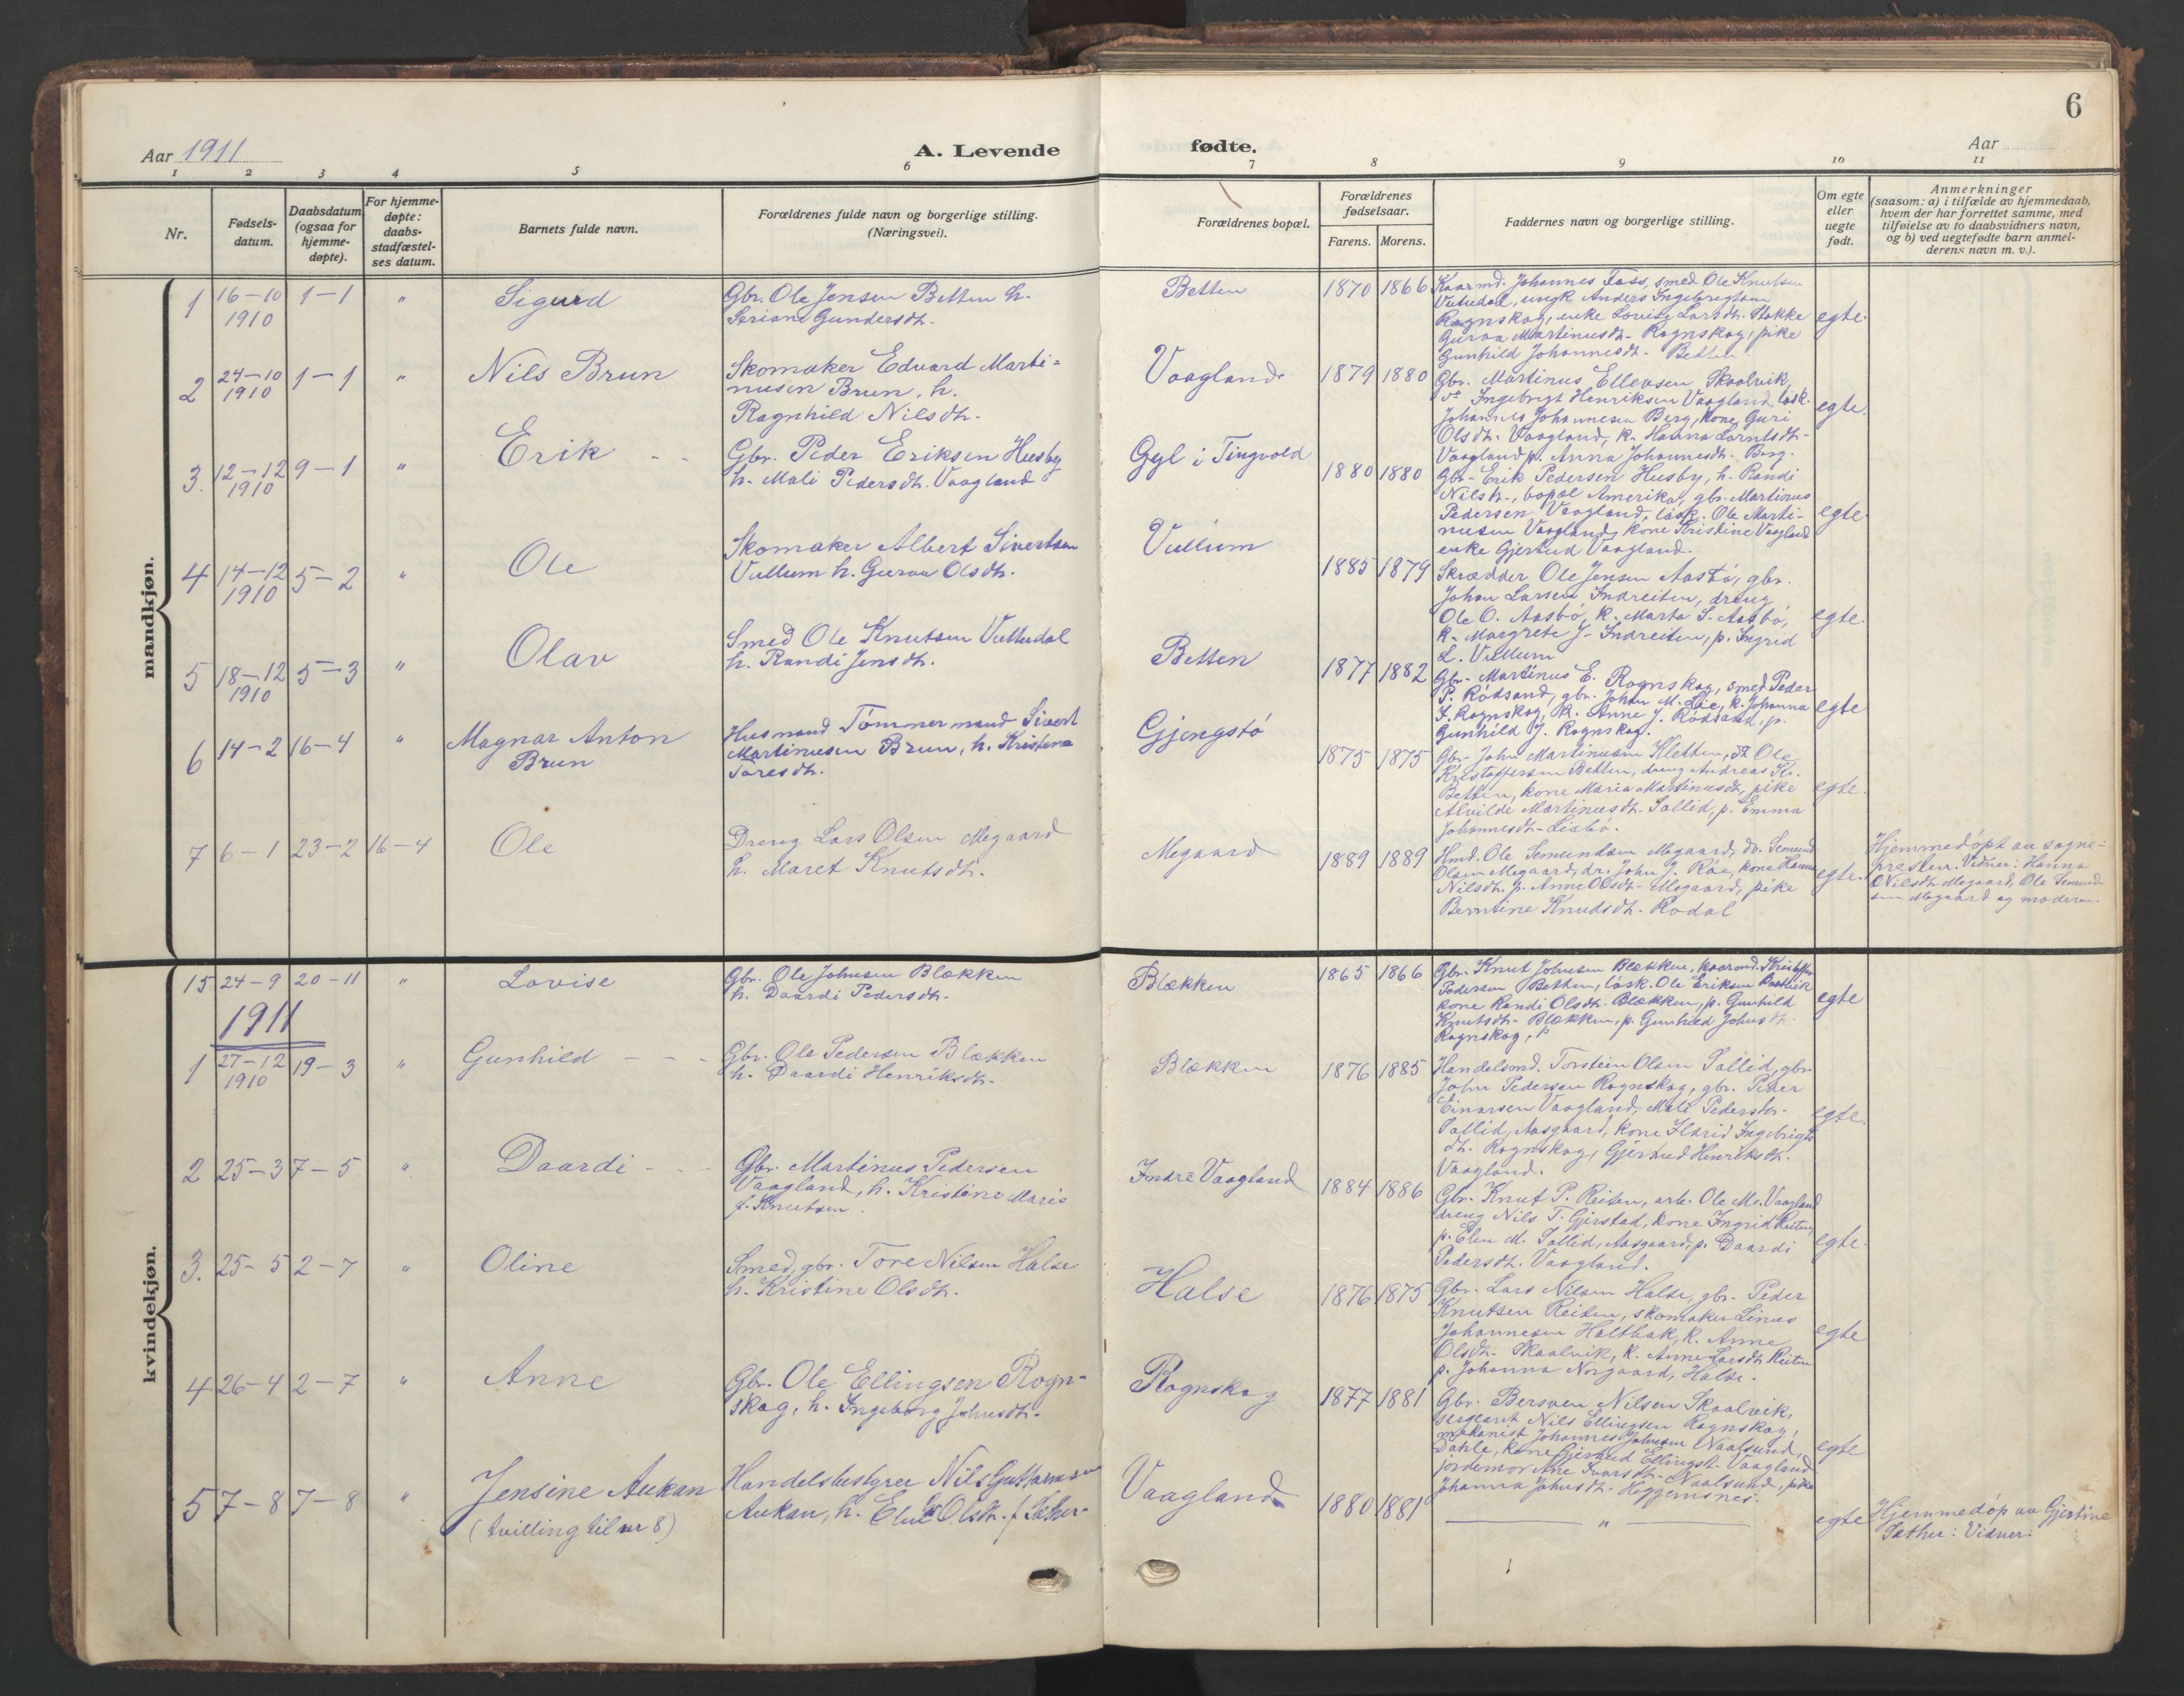 6
Aar 1911
A. Levende
fødte.
Aar
1 2 3 4 5 6 7 8 9 10 11
Nr.
Fødsels-
datum.
Daabsdatum
(ogsaa for
hjemme-
døpte).
For hjemme-
døpte:
daabs-
stadfæstel-
ses datum.
Barnets fulde navn.
Forældrenes fulde navn og borgerlige stilling.
(Næringsvei).
Forældrenes bopæl.
Forældrenes
fødselsaar.
Farens. Morens.
Faddernes navn og borgerlige stilling.
Om egte
eller
uegte
født.
Anmerkninger
(saasom: a) i tilfælde av hjemmedaab,
hvem der har forrettet samme, med
tilføielse av to daabsvidners navn,
og b) ved uegtefødte barn anmel-
derens navn m. v.).
mandkjøn.
1 16-10 1-1 "
1910
Sigurd
Gbr. Ole Jensen Betten h.
Seriane Gundersdt.
Betten
1870 1866
Kaarmd. Johannes Foss, smed Ole Knutsen
Vuttudal, ungk Anders Ingebrigtsen
Rognskog, enke Lovise Larsdt. Stokke
Guroa Martinusdt. Rognskog, pike
Gunhild Johannesdt. Betten
egte.
2 24-10 1-1 "
1910
Nils Brun
Skomaker Edvard Marti-
nusen Brun, h.
Ragnhild Nilsdt.
Vaagland
1879 1880
Gbr. Martinus Ellevsen Skaalvik,
do Ingebrigt Henriksen Vaagland, løsk.
Johannes Johannesen Berg, kone Guri
Olsdt. Vaagland, k. Hanna Larntsdt-
Vaagland p. Anna Johannesdt. Berg.
egte.
3. 12-12 9-1 "
1910
Erik
Gbr. Peder Eriksen Husby
h. Mali Pedersdt. Vaagland
Gyl i Tingvold
1880 1880
Gbr- Erik Pedersen Husby, h. Randi
Nilsdt-, bopæl Amerika, gbr. Martinus
Pedersen Vaagland, løsk. Ole Marti-
nusen Vaagland, kone Kristine Vaagland
enke Gjertrud Vaagland.
egte.
4 14-12 5-2 "
1910
Ole
Skomaker Albert Sivertsen
Vullum h. Guroa Olsdt.
Vullum
1885 1879
Skrædder Ole Jensen Aasbø, gbr.
Johan Larsen Indreiten, dreng
Ole O. Aasbø, k. Marta S. Aasbø,
k. Margrete J. Indreiten, p. Ingrid
L. Vullum
egte.
5 18-12 5-3 "
1910
Olav
Smed Ole Knutsen Vuttudal
h. Randi Jensdt.
Betten
1877 1882
Gbr. Martinus E. Rognskog, smed Peder
P. Rødsand, gbr. Johan M. Lie, k. Johanna
I. Rognskog, k. Anne J. Rødsand, p.
Gunhild J. Rognskog.
egte
6 14-2 16-4 "
Magnar Anton
Brun
Husmand Tømmermand Sivert
Martinusen Brun, h. Kristine
Toresdt.
Gjengstø
1875 1875
Gbr. John Martinusen Kletten, do Ole
Kristoffersen Betten, dreng Andreas Kr.
Betten, kone Maria Martinusdt, pike
Alvilde Martinusdt. Sollid, p. Emma
Johannesdt-Liabø.
egte.
7 6-1 23-2 16-4
Ole
Dreng Lars Olsen Megaard
h. Maret Knutsdt.
Megaard
1889 1889
Hmd. Ole Semundsen Megaard, dr. Semund
Olsen Megaard, dr. John J. Røe, kone Hanna
Nilsdt. p. Anne Olsdt- Megaard, pike
Berntine Knudsdt. Rodal
egte.
Hjemmedøpt av sogne-
presten. Vidner: Hanna
Nilsdt. Megaard, Ole Semund-
sen Megaard og moderen.
kvindekjøn.
15 24-9 20-11 "
Lovise
Gbr. Ole Johnsen Blækken
h. Daardi Pedersdt.
Blækken
1865 1866
Gbr. Knut Johnsen Blækken, kaarmd. Kristoffer
Pedersen Betten, løsk. Ole Eriksen
kone Randi Olsdt. Blækken, p. Gunhild
Knutsdt- Blækken, p. Gunhild Johnsdt.
Rognskog,
egte
1911
1 27-12 19-3 "
1910
Gunhild
Gbr. Ole Pedersen Blækken
h. Daardi Henriksdt.
Blækken
1876 1885
Handelsmd. Torstein Olsen Sollid, gbr
John Pedersen Rognskog, gbr. Peder
Einarsen Vaagland, Mali Pedersdt.
Sollid, Aasgaard, kone Flørid Ingebrigts
dt. Rognskog, Gjertrud Henriksdt.
Vaagland.
egte.
2 25-3 7-5 "
Daardi
Gbr. Martinus Pedersen
Vaagland, h. Kristine Marie
f. Knutsen.
Indre Vaagland
1884 1886
Gbr. Knut P. Reiten, arb. Ole M. Vaagland
dreng Nils T. Gjerstad, kone Ingrid Reiten,
p. Elen M. Sollid, Aasgaard, p. Daardi
Pedersdt. Vaagland.
egte.
3. 25-5 2-7 "
Oline
Smed, gbr. Tore Nilsen Halse
h. Kristine Olsdt.
Halse
1876 1875
Gbr. Lars Nilsen Halse, gbr. Peder
Knutsen Reiten, skomaker Linus
Johannesen Holtbak, k. Anne
Olsdt. Skaalvik, k. Anne Larsdt. Reiten
p. Johanna Norgaard, Halse.
egte
4 26-4 2-7 "
Anne
Gbr. Ole Ellingsen Rogn-
skog, h. Ingeborg Johnsdt.
Rognskog
1877 1881
Gbr. Bersven Nilsen Skaalvik,
sergeant Nils Ellingsen Rognskog,
mekanist Johannes Johnsen Naalsund,
Dahle, kone Gjertrud Ellingsdt. Vaagland
jordemor Ane Ivarsdt. Naalsund, pike
Johanna Johnsdt. Heggemsnes.
egte
5 7-8 7-8 "
Jensine Aukan
(tvilling til nr 8)
Handelsbestyrer Nils Guttormsen
Aukan, h. Eline Olsdt. f. Sæther-
Vaagland
1880 1881
"
egte
Hjemmedøp av Gjertine
Sæther: Vidner: